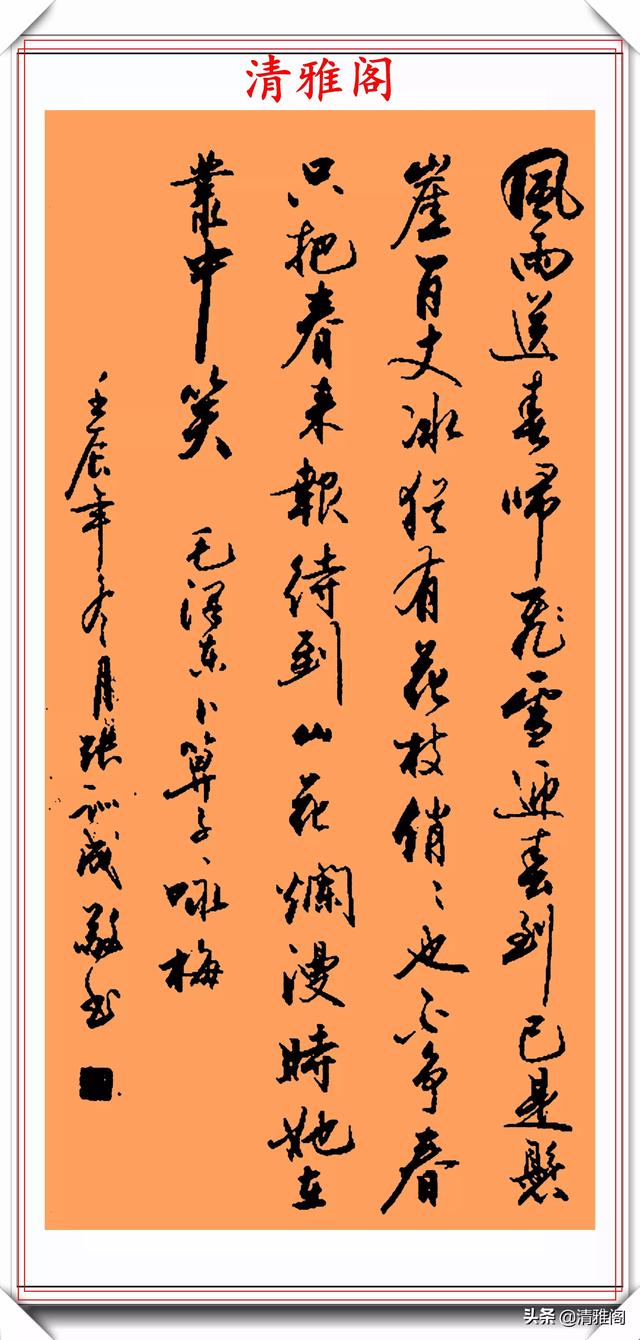 清雅阁
風雨送春歸飛雪迎春到已是懸
崖百丈冰猶有花枝俏俏也不爭春
只把春來報待到山花爛漫時她在
叢中笑 毛澤東卜算子咏梅
壬辰年冬月張訓成敬书
头条@清雅阁